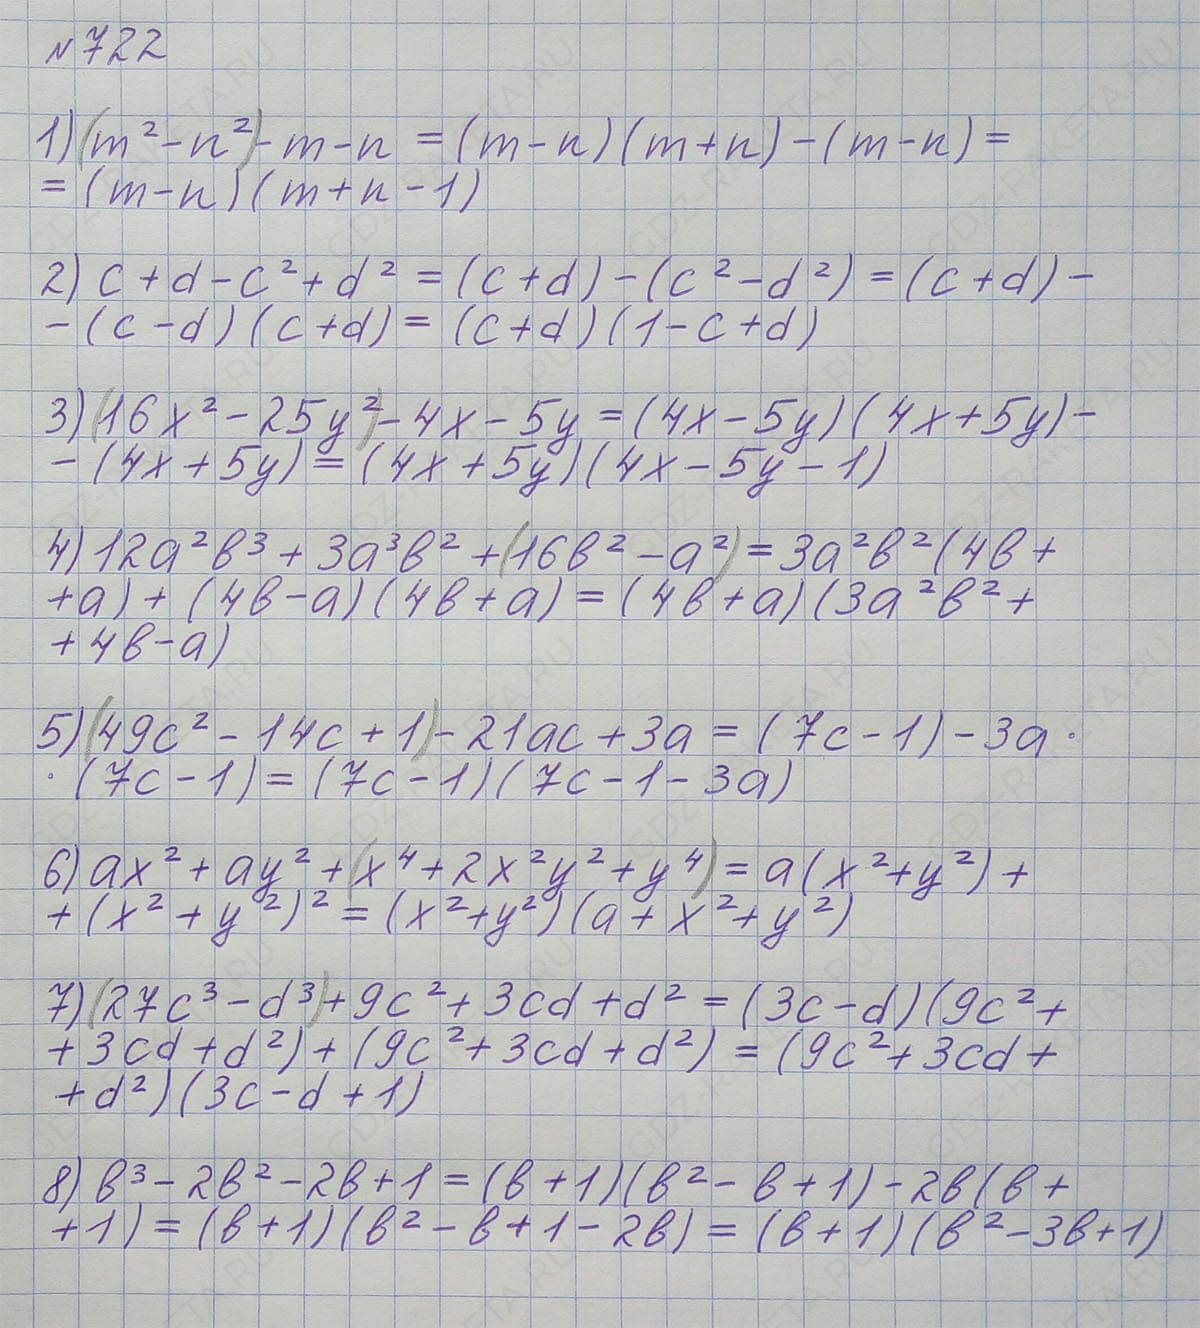 №722
1) (m² - n²) - m - n = (m - n)(m + n) - (m - n) =
= (m - n)(m + n - 1)
2) c + d - c² + d² = (c + d) - (c² - d²) = (c + d) -
- (c - d)(c + d) = (c + d)(1 - c + d)
3) (16x² - 25y²) - 4x - 5y = (4x - 5y)(4x + 5y) -
- (4x + 5y) = (4x + 5y)(4x - 5y - 1)
4) 12a²в³ + 3a³в² + (16в² - a²) = 3a²в²(4в +
+ a) + (4в - a)(4в + a) = (4в + a)(3a²в² +
+ 4в - a)
5) (49c² - 14c + 1) - 21ac + 3a = (7c - 1) - 3a ·
· (7c - 1) = (7c - 1)(7c - 1 - 3a)
6) ax² + ay² + (x⁴ + 2x²y² + y⁴) = a(x² + y²) +
+ (x² + y²)² = (x² + y²)(a + x² + y²)
7) (27c³ - d³) + 9c² + 3cd + d² = (3c - d)(9c² +
+ 3cd + d²) + (9c² + 3cd + d²) = (9c² + 3cd +
+ d²)(3c - d + 1)
8) в³ - 2в² - 2в + 1 = (в + 1)(в² - в + 1) - 2в(в +
+ 1) = (в + 1)(в² - в + 1 - 2в) = (в + 1)(в² - 3в + 1)